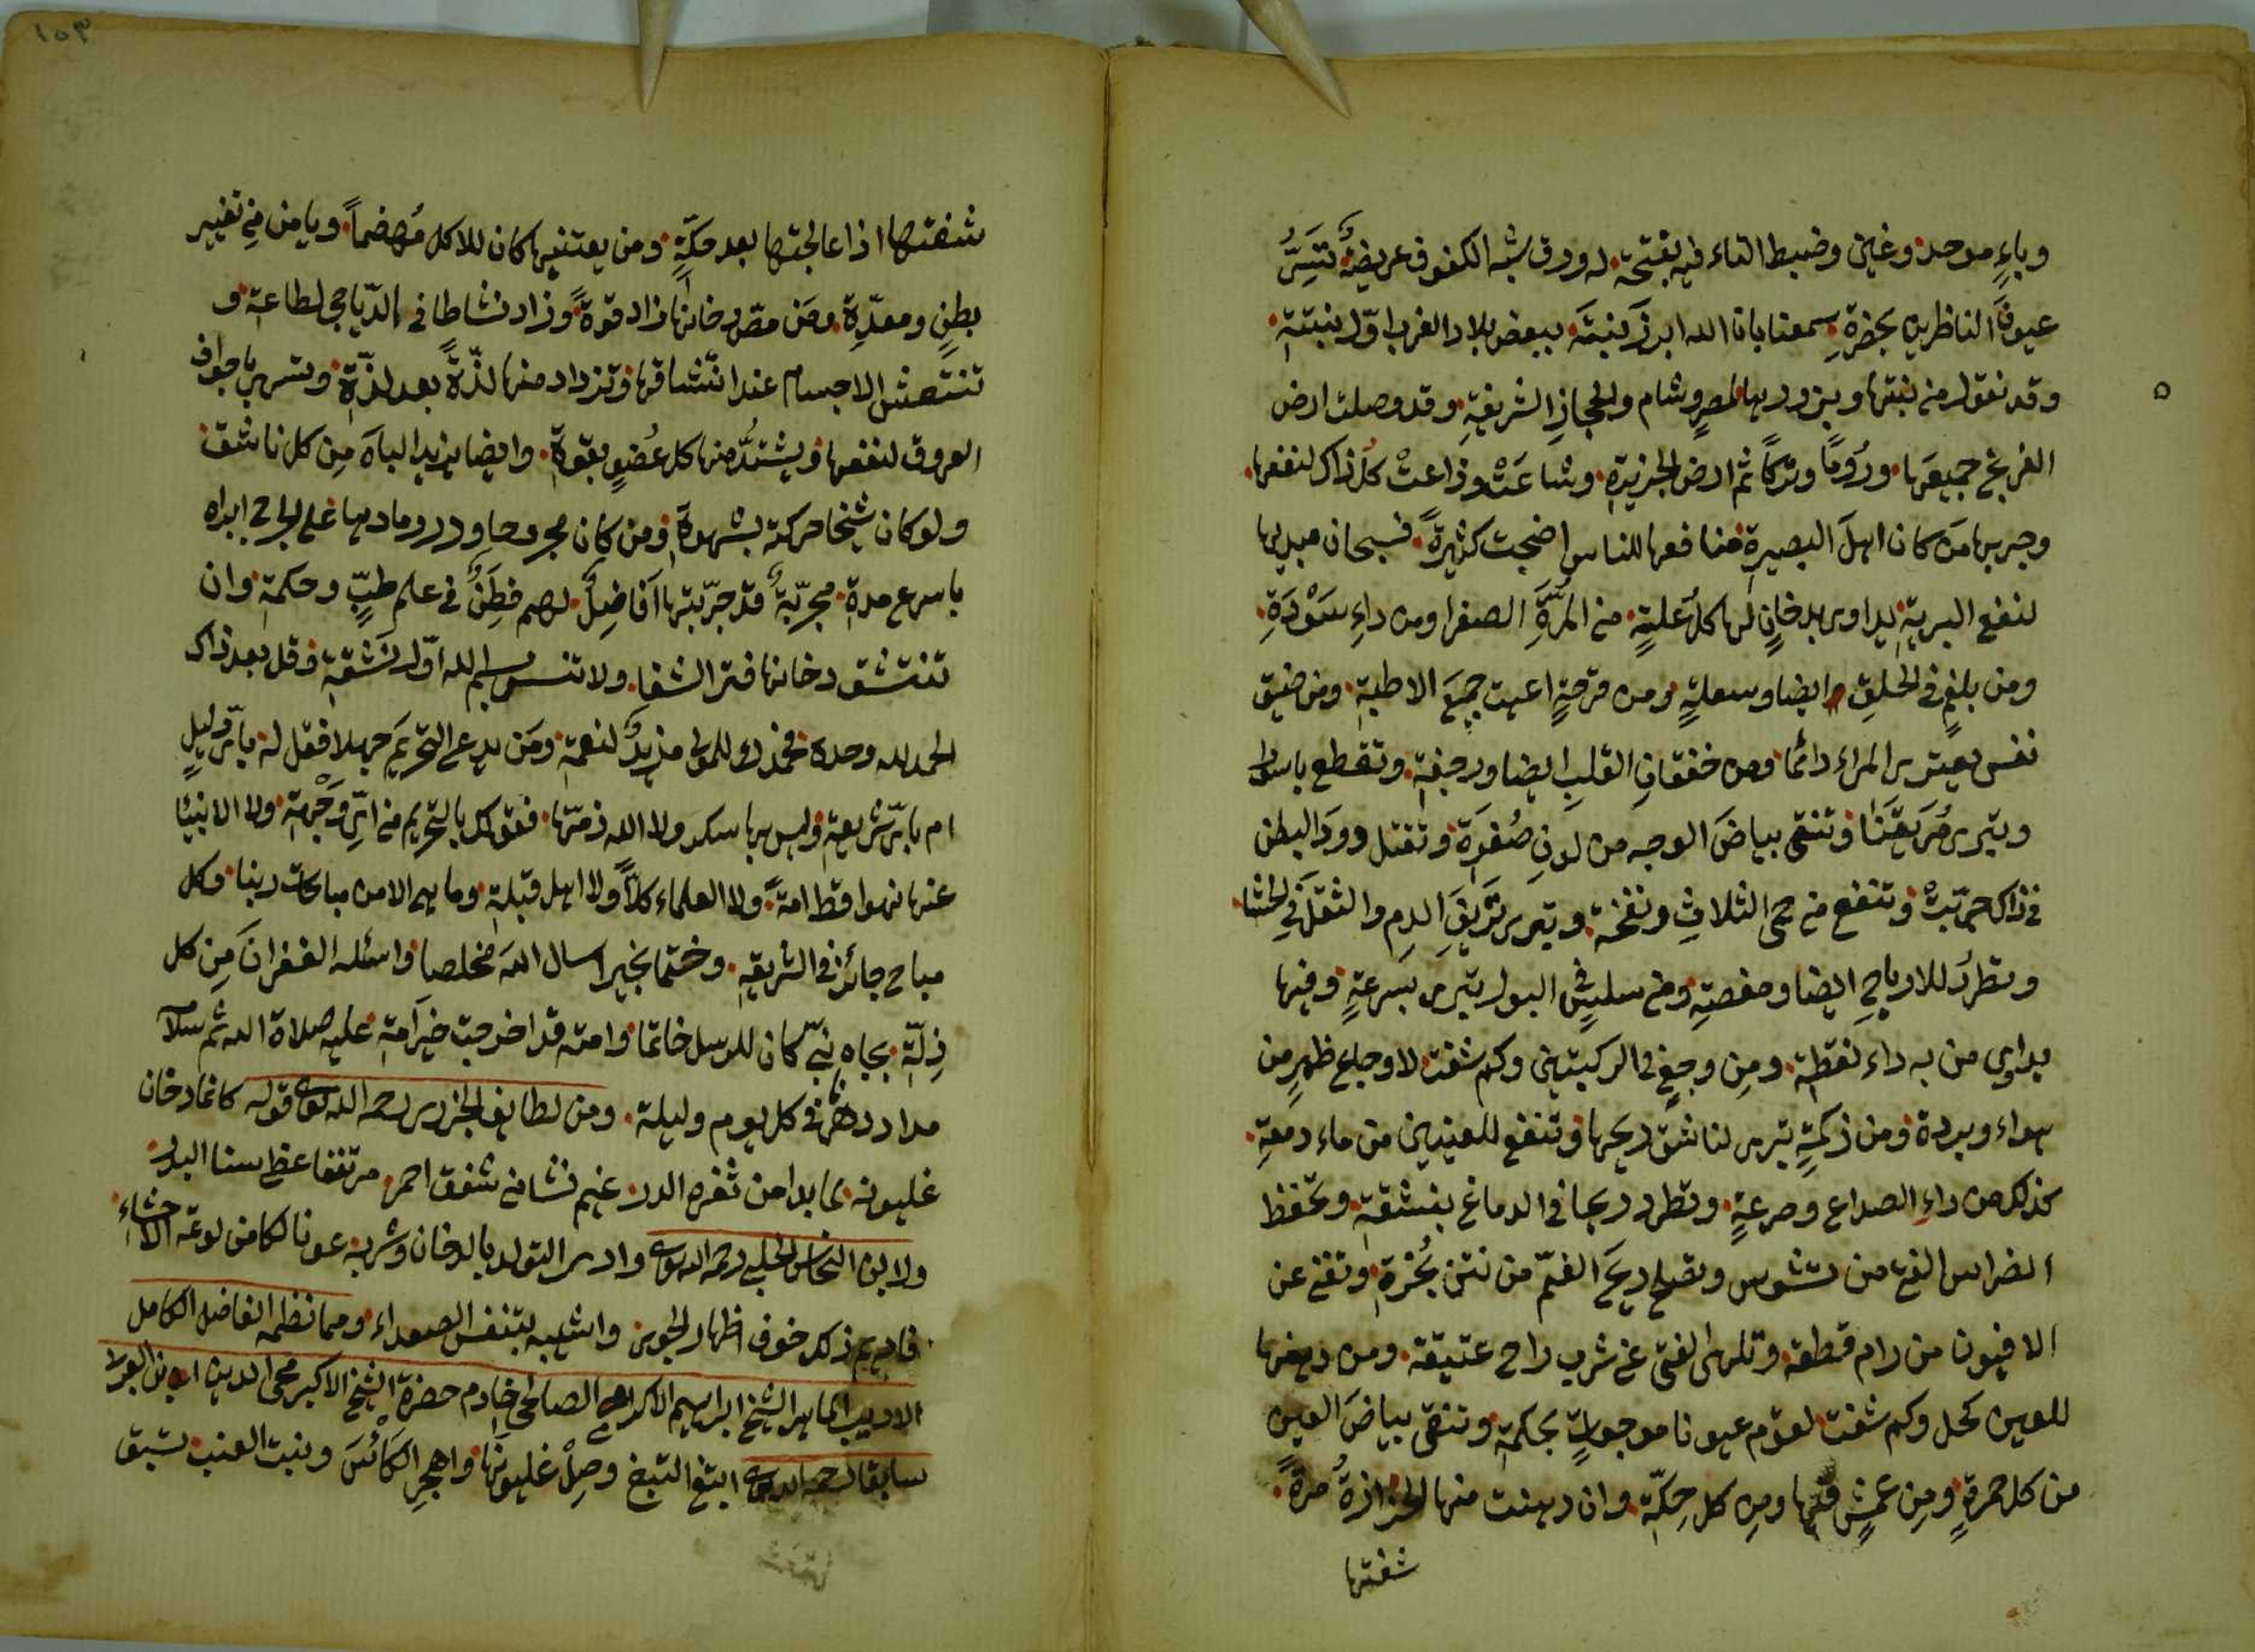 وباءٍ موحدة وغين وضبط التاء فيه بفتحة له ورق شبه الكفوف عريضةٌ تسرُّ
عيونَ الناظرين بخضرةٍ سمعنا بان الله ابرز نبتَه ببعض بلاد الغرب اوّل نبتتة
وقد نقول من نبتها وبزورها لمصرٍ وشام والحجازِ الشريفةِ وقد وصلت ارض
الفرنج جميعها ورُومًا وتركًا ثم ارض الجزيرةِ وشاعَتْ وذاعتْ كلُ ذاك لنفعها
وجربها من كان اهلَ البصيرةِ منافعها للناس اضحت كثيرةً فسبحان مبديها
لنفع البرية يداوى بدخانٍ لها كلُ علةٍ من المرَّةِ الصفرا ومن داءِ سَوْدَةِ
ومن بلغمٍ في الحلق ايضا وسعلةٍ ومن قرحةٍ اعيت جميعَ الاطبة ومن ضيق
نفس يعترى المراء دائما ومن خفقانِ القلبِ ايضا ورجفة وتقطع باسورا
وتبرى مُرَيقَنًا وتنقى بياضَ الوجه من لونِ صُفرَة وتقتل دودَ البطن
في ذاك جربتْ وتنفع من حمى الثلاثِ ونفخة وتبرى نزيفَ الدمِ والثقلَ في الحشا
وتطردُ للارياحِ ايضا ومغصةِ ومن سلسٍ في البول تبرى بسرعةٍ وفيها
يداوى من به داء نقطة ومن وجعٍ في الركبتين وكم شفت لاوجاع ظهرٍ من
هواء وبردة ومن زكمةٍ تبرى لناشق ريحها وتنفع للعينين من ماء دمعةِ
كذلك من داءِ الصداع وصرعةٍ وتطرد ريحا في الدماغ بنشقة وتحفظ
اضراس الفتى من تشوس وتصلح ريحَ الفمّ من نتن بُخرةِ وتغنى عن
الافيون من رام قطعه وتلهى الفتى عن شرب راح عتيقة ومن دهنها
للعين كحل وكم شفت لقوم عيونا موجعاتٍ بحكمة وتنقى بياضَ العينِ
من كل حمرةٍ ومِن عمشٍ فيها ومن كل حِكّة وان دهنت منها الحزازةُ مرةً
شفتها
١٠٣
شفتها اذا عالجتها بعد حكّةٍ ومن يعتنيها كان للاكل مُهضماً ويامن من تغيير
بطنٍ ومعدةِ ومَن مصّ دخانها زاد قوةً وزاد نشاطا في الدّياجى لطاعة و
تنتعش الاجسام عند انتشاقها وتزداد منها لذّةً بعد لذّةٍ وتسرى باجواف
العروق لنفعها ويشتدُّ منها كل عُضوٍ بقوة وايضا يزيد الباهَ مِن كل ناشقٍ
ولو كان شيخا حركته بشهوة ومن كان مجروحا وذر رمادها على الجرح ابراه
باسرع مدة مجربةٌ قد جرّبتها افاضلٌ لهم فطنٌ في علم طبٍّ وحكمة وان
تنتشق دخانها فترا الشفا ولا تنس بسم الله اوّل نَشقةٍ وقل بعد ذاك
الحمد لله وحده فحمدك للمولى مزيدٌ لنعمة ومَن يدعى التحريمَ جهلا فقل له باىّ دليلٍ
ام باىّ شريعةٍ وليس بها سكر ولا الله ذمّها فقولك بالتحريم من اىّ وَجْهة ولا الانبيا
عنها نهوا قط امةً ولا العلماء كلاً ولا اهل قبلةٍ وما هى الا من مباحات ربنا وكل
مباح جائز في الشريعةِ وختما بخير اسال اللهَ مخلصا واسئله الغفرانَ مِن كل
زِلّةٍ بجاه نبىّ كان للرسل خاتما وامته قد اخرجت خيرَ امةٍ عليه صلاة الله ثم سلامه
مدا دهرنا في كل يوم وليلة ومن لطايف الجزرى رحمه الله تعالى قوله كانما دخان
غليونه لما بدا من ثغره الدر غيم نشا في شفق احمر مرتفعا غطى سنا البدر
ولابن النحاس الحلبى رحمه الله تعالى وارى التولع بالدخان وشربه عونا لكامن لوعة الاحشاء
فاديم ذلك خوف اظهار الجوى واشبه بتنفس الصعداء ومما نظمه الفاضل الكامل
الاديب الماهر الشيخ ابراهيم الاكرمى الصالحى خادم حضرة الشيخ الاكبر محى الدين ابن العربى
سابقا رحمه الله تعالى ابتغ التبغ وصِلْ غليونها واهجرِ الكأسَ وبنت العنب تستبق